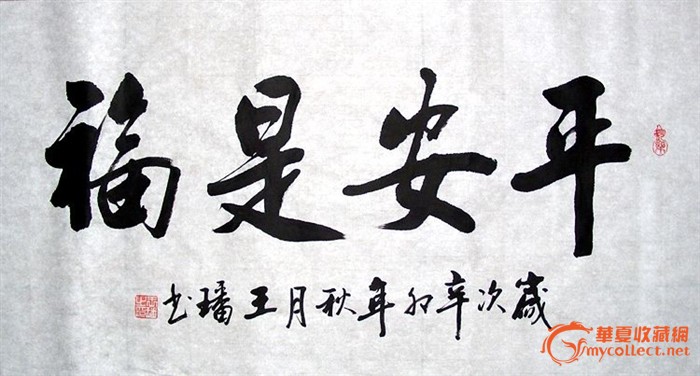 平安是福
歲次辛卯年秋月王璠书
華夏收藏網
mycollect.net